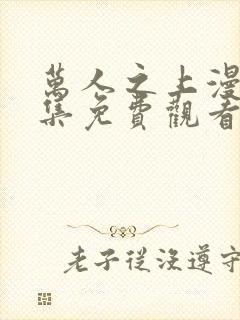 萬人之上漫
集免費觀看
老子從沒遵守